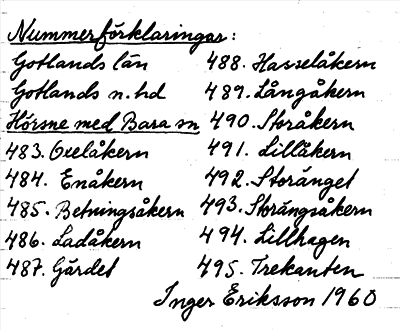 Nummerförklaringar:
Gotlands län
Gotlands n. hd
Hörsne med Bara sn
483. Orelåkern
484. Enåkern
485. Betningsåkern
486. Ladåkern
487. Gärdet
488. Hasselåkern
489. Långåkern
490. Storåkern
491. Lillåkern
492. Storänget
493. Storängsåkern
494. Lillhagen
495. Trekanten
Inger Eriksson 1960